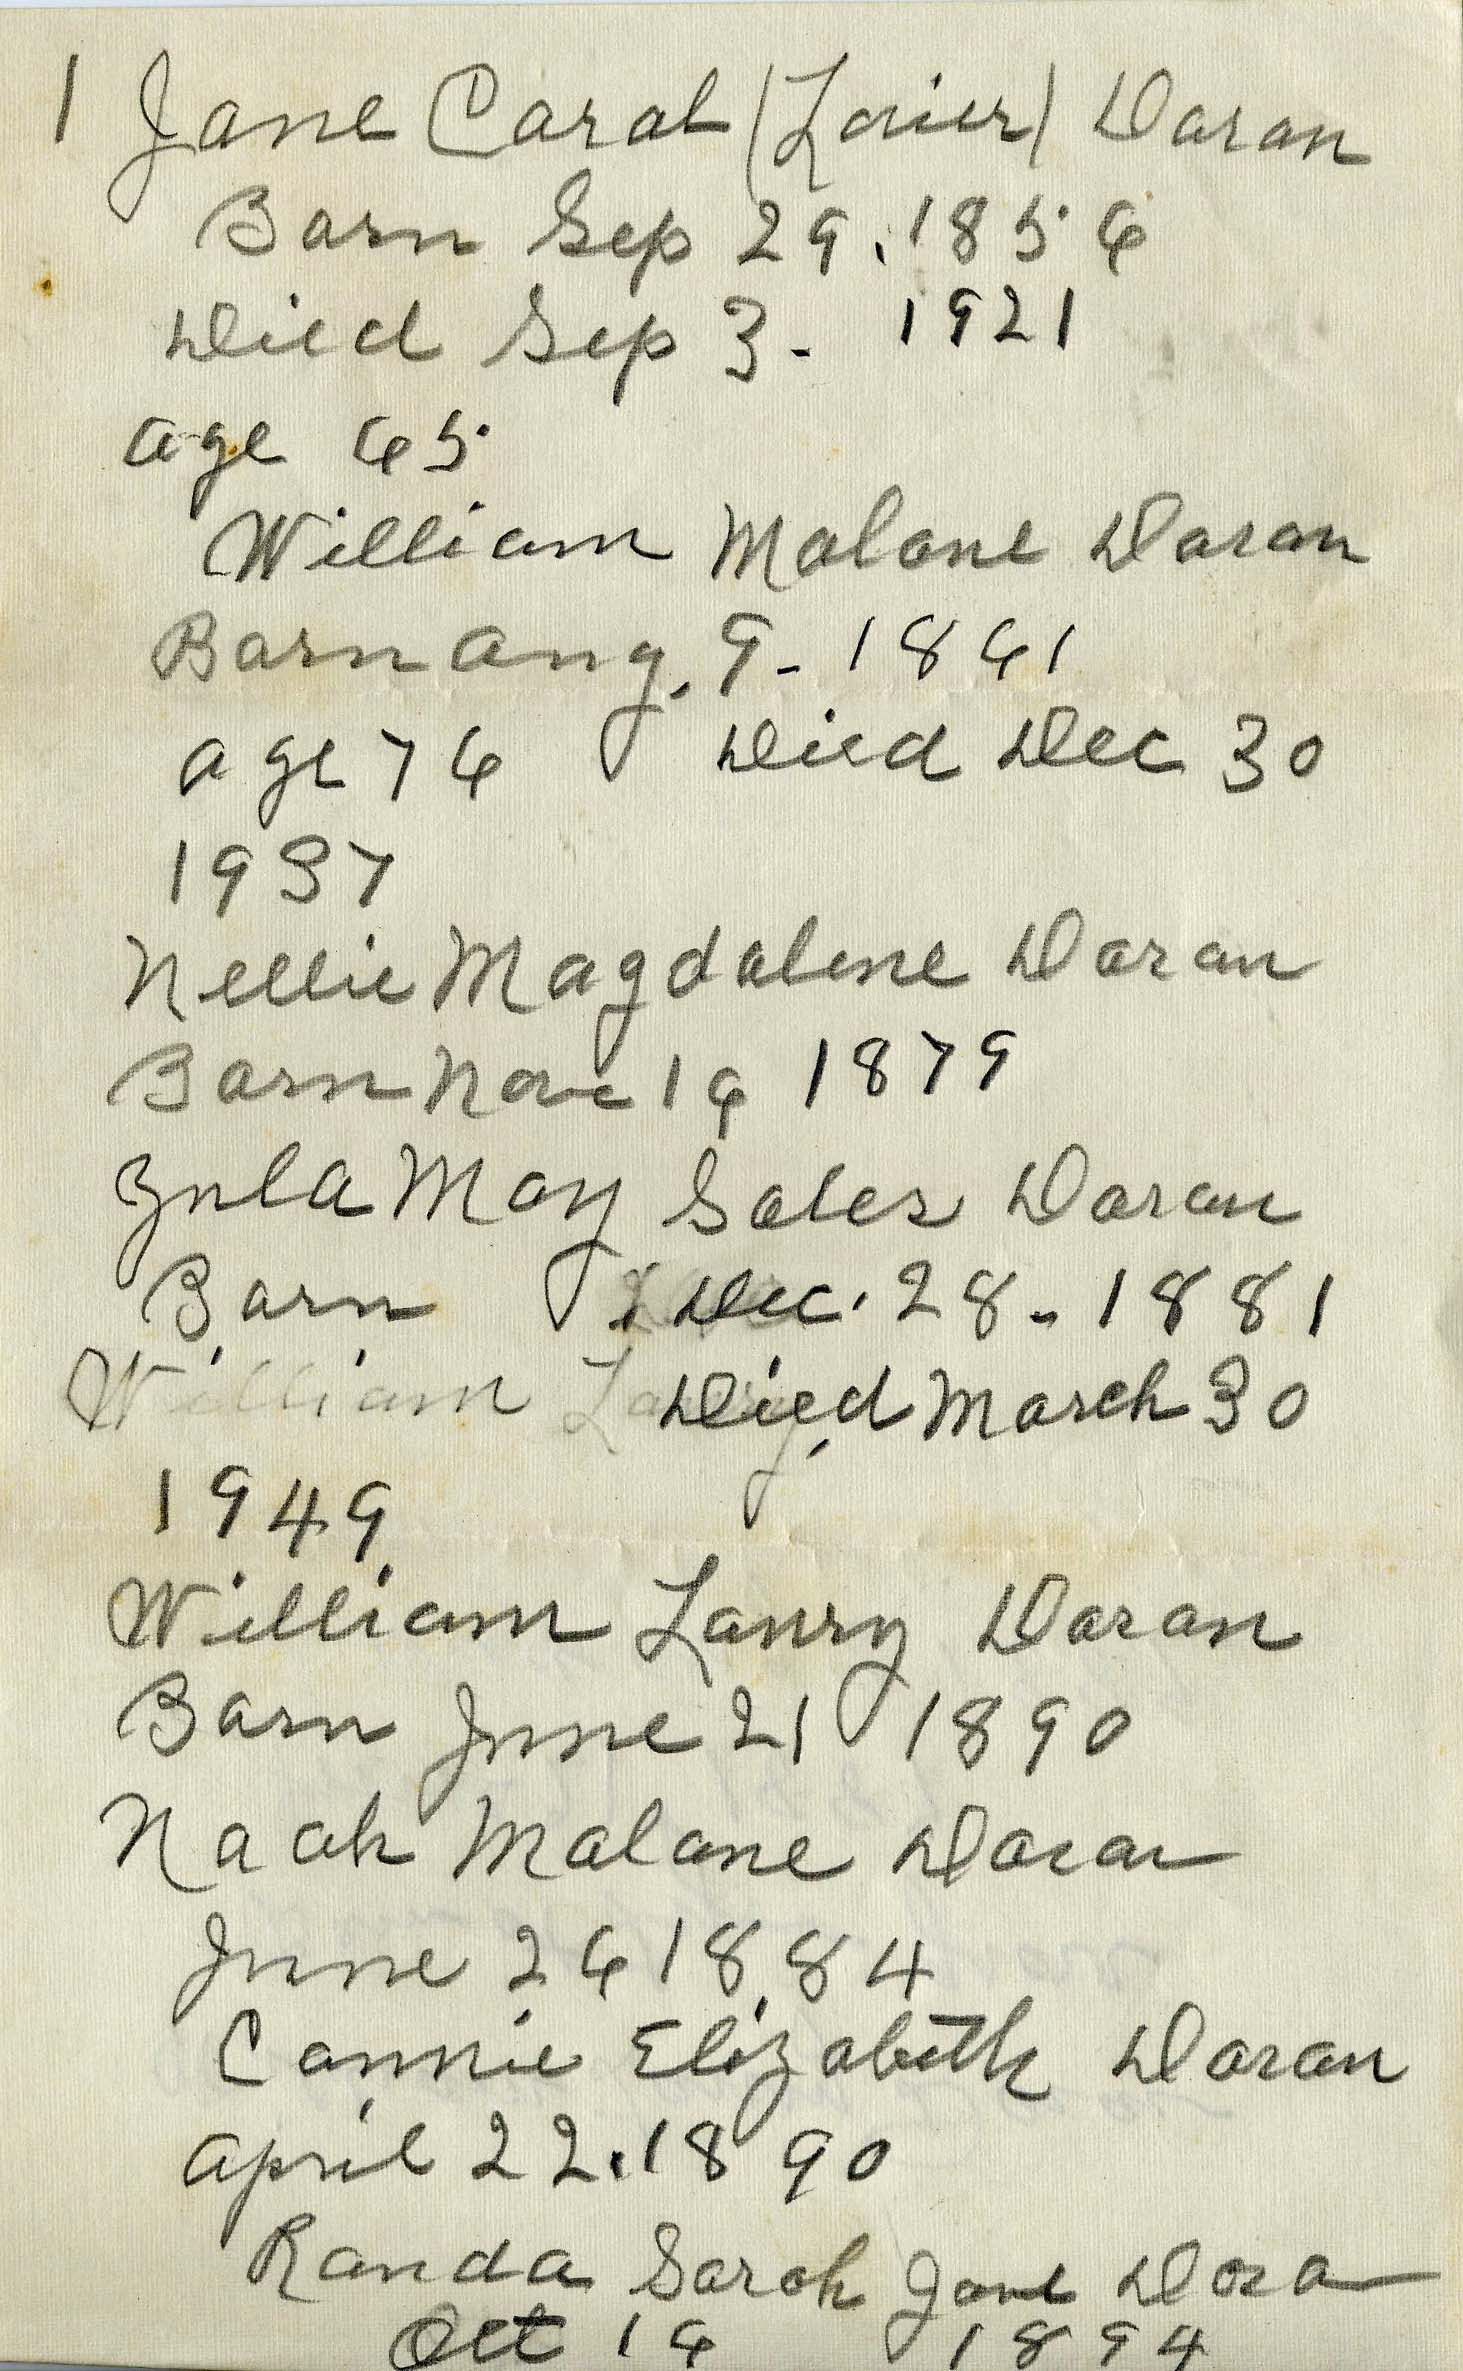 1 Jane Carol Doran
Born Sep 29, 1856
Died Sep 3 - 1921
age 65
William Malone Doran
Born Aug. 9 - 1861
age 76 Died Dec 30
1937
Nellie Magdalene Doran
Born Nov 16 1879
Zula May Sales Doran
Born Dec. 28 - 1881
William Laury Died March 30
1949
William Laury Doran
Born June 21 1890
Noah Malone Doran
June 26 1884
Connie Elizabeth Doran
April 22, 1890
Randa Sarah Jane Doran
Oct 16 1894